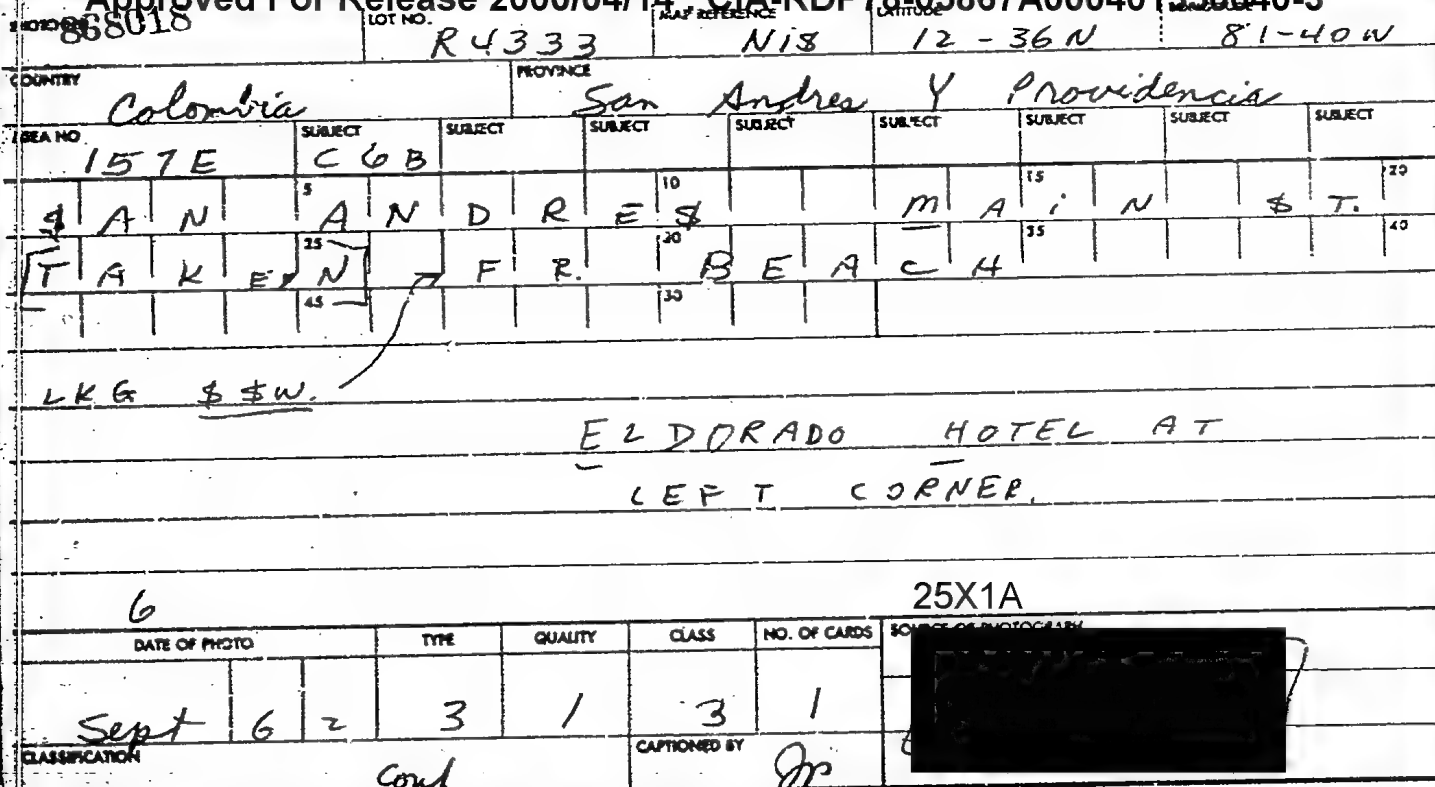 Approved For Release 2000/04/14 : CIA-RDP78-03867A000401
868018 LOT NO. R4333 MAP REFERENCE Ni8 LATITUDE 12-36N 81-40W
COUNTRY Colombia PROVINCE San Andres Y Providencia
AREA NO 157E SUBJECT C6B SUBJECT SUBJECT SUBJECT SUBJECT SUBJECT SUBJECT SUBJECT
5 10 15 20
$AN ANDRE$ MAiN $T.
25 30 35 40
[TAKEN] FR. BEACH
45 50
LKG $$W.
ELDORADO HOTEL AT
LEFT CORNER.
6 25X1A
DATE OF PHOTO TYPE QUALITY CLASS NO. OF CARDS SOURCE OF PHOTOGRAPH
Sept 6 2 3 1 3 1
CLASSIFICATION CAPTIONED BY